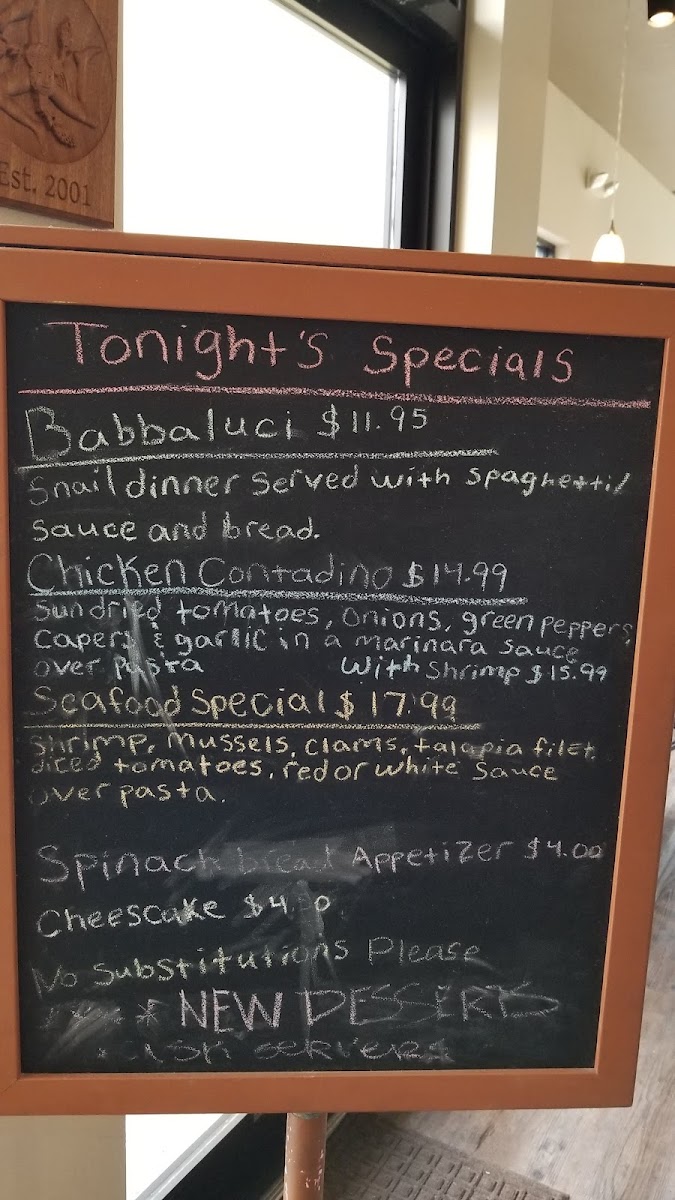 Est. 2001
Tonight's Specials
Babbaluci $11.95
Snail dinner served with spaghetti
sauce and bread.
Chicken Contadino $14.99
Sundried tomatoes, onions, green peppers,
capers & garlic in a marinara sauce
over pasta With Shrimp $15.99
Seafood Special $17.99
Shrimp, Mussels, clams, talapia filet,
diced tomatoes, red or white sauce
over pasta.
Spinach bread Appetizer $4.00
Cheescake
No Substitutions Please
NEW DESSERTS